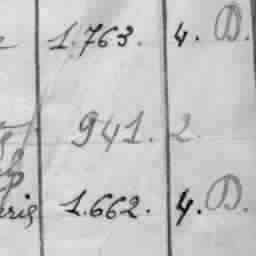 1.763. 4. D.
941. 2.
1.662. 4. D.